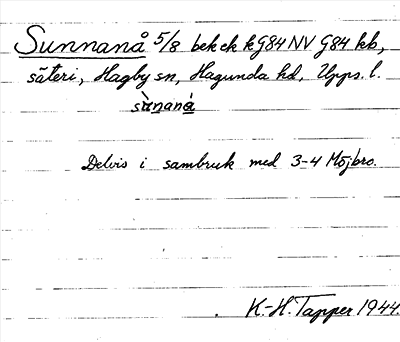 Sunnanå 5/8 bek ek k G84 NV G84 kb,
säteri, Hagby sn, Hagunda hd, Upps. l.
sùnaná
Delvis i sambruk med 3-4 Möjbro.
K.-H. Tapper 1944.